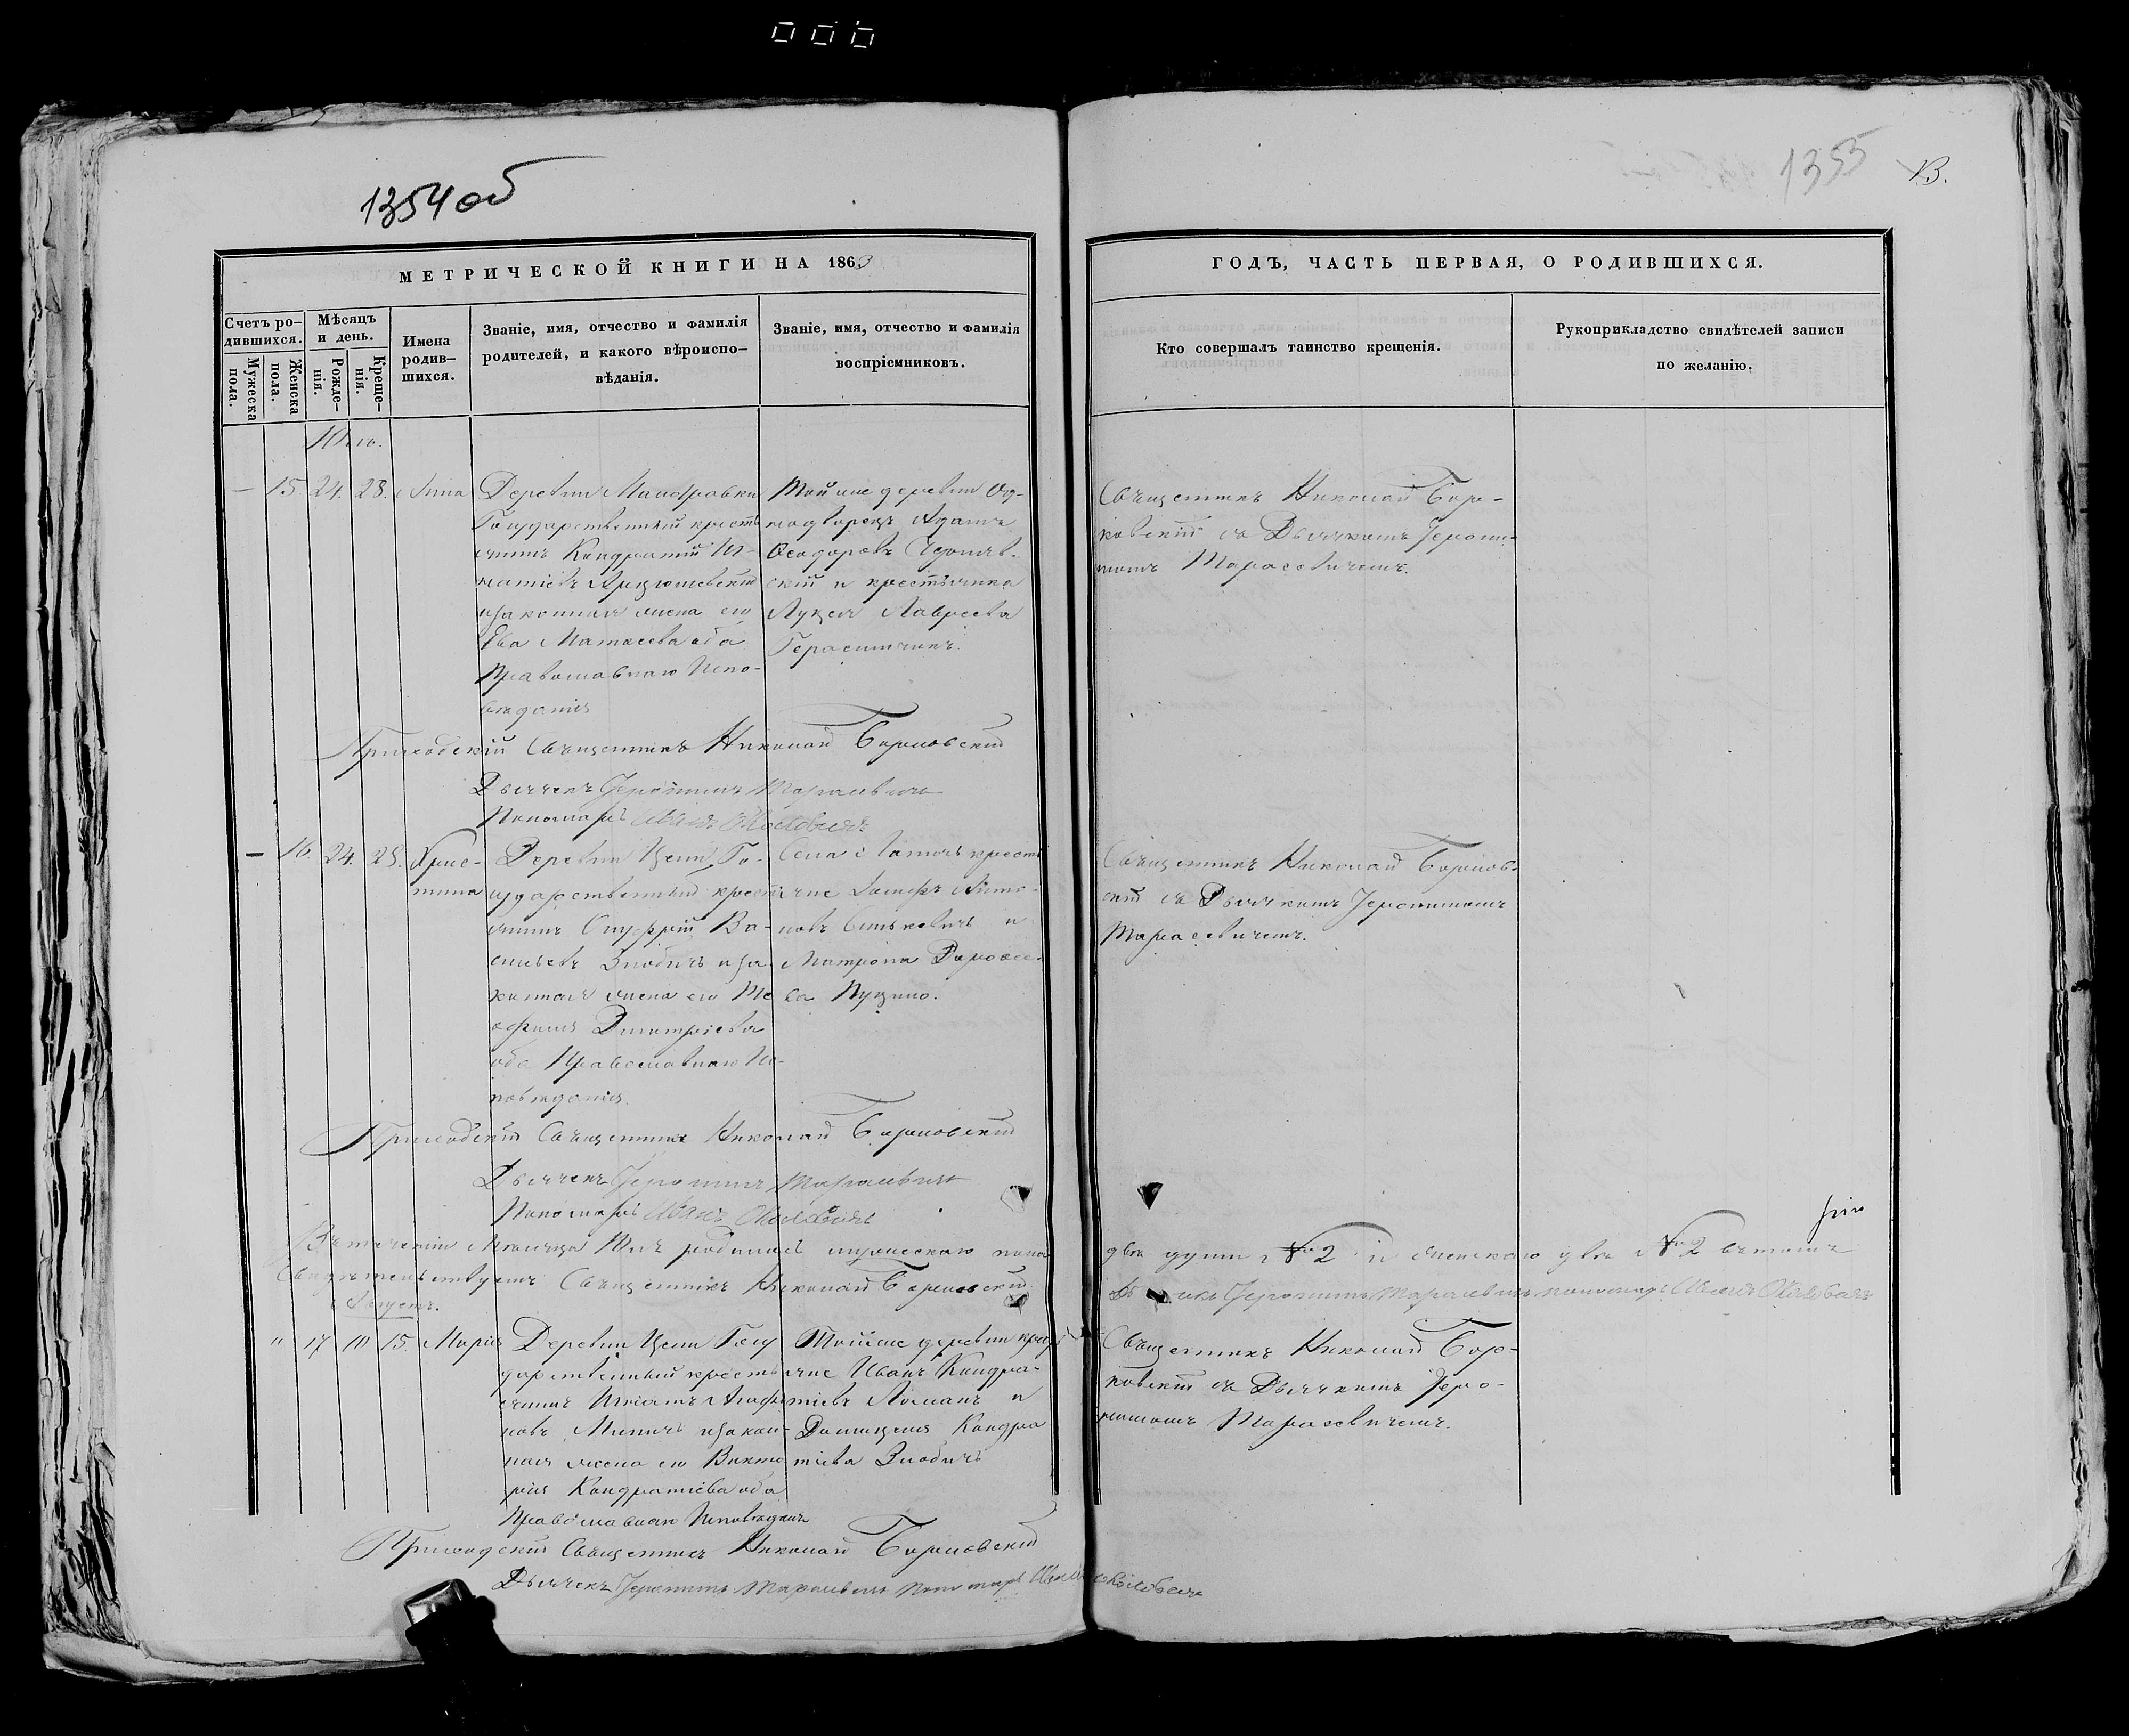 1354 об
1355
13.
МЕТРИЧЕСКОЙ КНИГИ НА 1863
Счетъ ро-
дившихся.
Мужеска
пола.
Женска
пола.
Мѣсяцъ
и день.
Рожде-
нія.
Креще-
нія.
Имена
родив-
шихся.
Званіе, имя, отчество и фамилія
родителей, и какого вѣроиспо-
вѣданія.
Званіе, имя, отчество и фамилія
воспріемниковъ.
ГОДЪ, ЧАСТЬ ПЕРВАЯ, О РОДИВШИХСЯ.
Кто совершалъ таинство крещенія.
Рукоприкладство свидѣтелей записи
по желанію.
Юль.
— 15. 24. 28. Анна
Деревни
Государственный кресть
янинъ Кондратій Иг-
натіевъ
изаконная жена его
Ева Матвеева оба
Православнаго Испо-
веданія
Той же деревни Од-
нодворецъ Адамъ
Феодоровъ
скій и крестьянка
Луцея
Герасимчикъ.
Священникъ Николай Бор-
ковскій съ Дьячкомъ Іерони-
момъ Тарасевичемъ.
Приходскій Священникъ Николай Борковскій
Дьячекъ Іеронимъ Тарасевичъ
Пономарь Иванъ
— 16. 24. 28. Хрис-
тина
Деревни Цепи Го-
сударственный крести
янинъ Онуфрій Ва-
сильевъ Злобичъ иза-
конная жена его Ѳе
офимя Димитріева
оба Православнаго Ис-
поведанія.
Села кресть
яне Іосифъ Анто-
новъ Синкевичъ и
Матрона
ва
Священникъ Николай Борков-
скій съ Дьячкомъ Іеронимомъ
Тарасевичемъ.
Приходскій Священникъ Николай Борковскій
Дьячекъ Іеронимъ Тарасевичъ
Пономарь Иванъ
Втеченіи Месяца Юль родилось мужескаго пола
две души № 2 и женскаго две № 2 вътомъ
Свидетельствуетъ Священникъ Николай Борковскій
Іеронимъ Тарасевичъ пономарь Иванъ
Августъ.
" 17 10 15. Марія
Деревни Цепи Госу
дарственный кресть
янинъ Игнатъ
новъ Миничъ изакон-
ная жена его Викто
рія Кондратіева оба
Православнаго Исповедан
Той же деревни крест
яне Иванъ Кондра-
тіевъ Ломанъ и
Домицеля Кондра
тіева Злобичъ
Священникъ Николай Бор-
ковскій съ Дьячкомъ Іеро-
нимомъ Тарасевичемъ.
Приходскій Священникъ Николай Борковскій
Дьячекъ Іеронимъ Тарасевичъ Пономарь Иванъ